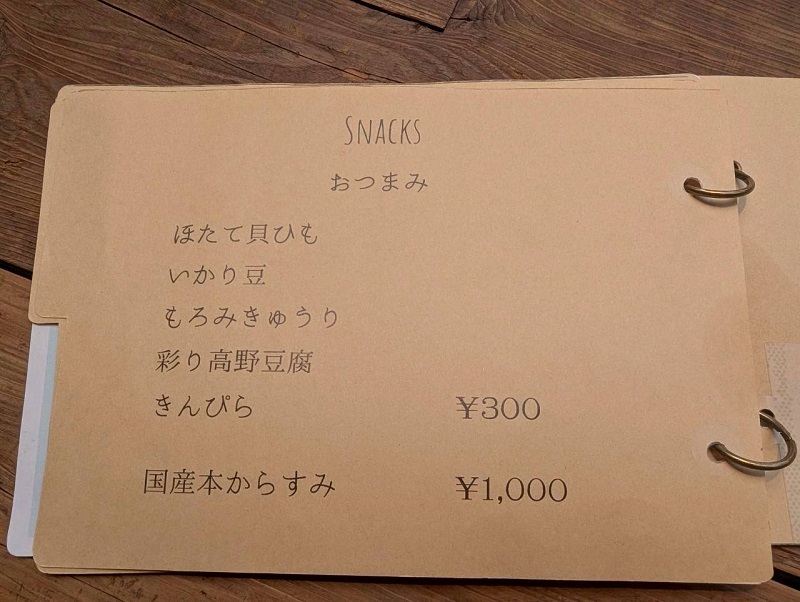 SNACKS
おつまみ
ほたて貝ひも
いかり豆
もろみきゅうり
彩り高野豆腐
きんぴら ¥300
国産本からすみ ¥1,000